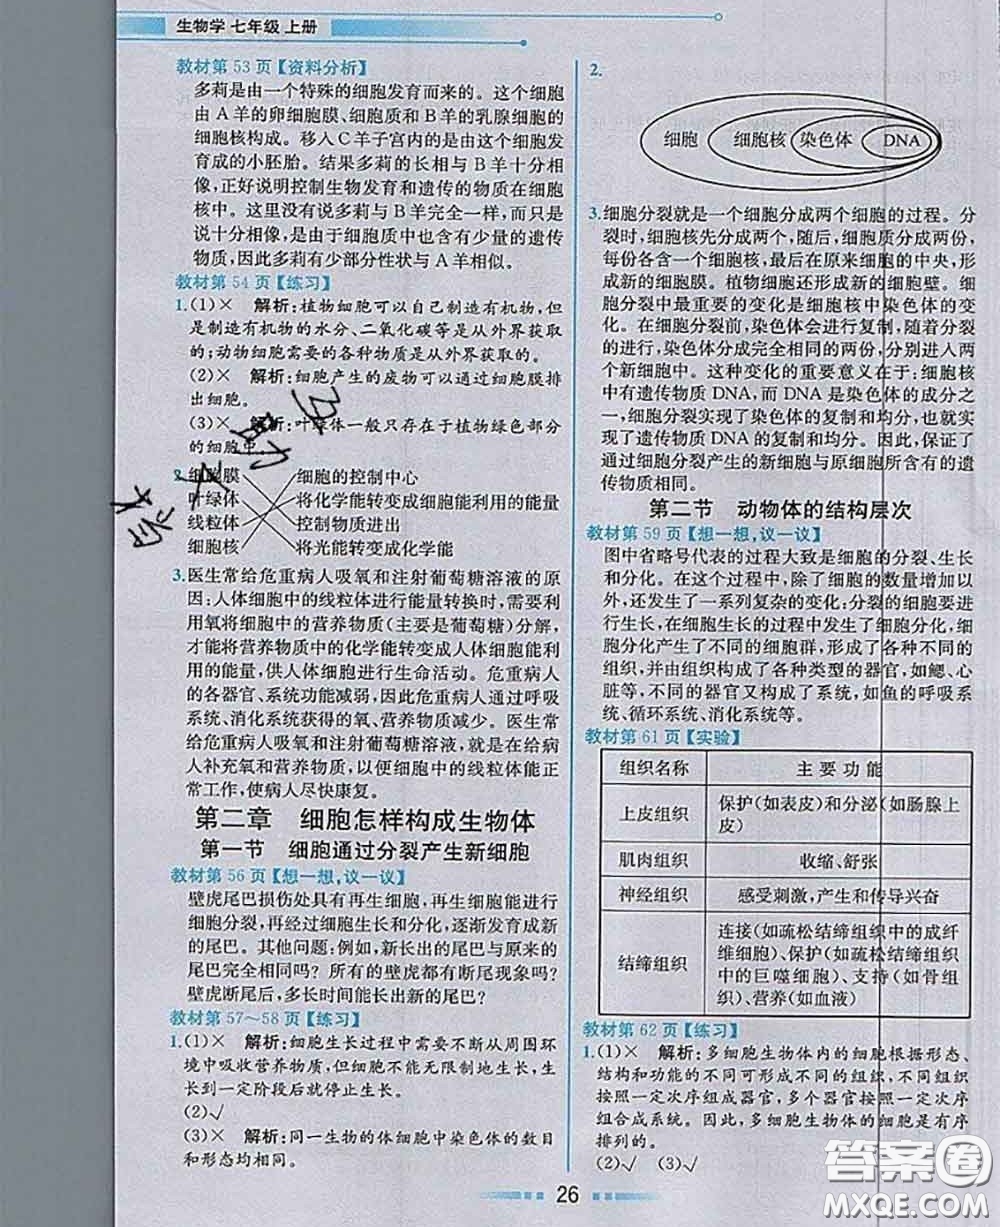 生物学 七年级 上册
教材第53页【资料分析】
多莉是由一个特殊的细胞发育而来的。这个细胞
由A羊的卵细胞膜、细胞质和B羊的乳腺细胞的
细胞核构成。移入C羊子宫内的是由这个细胞发
育成的小胚胎。结果多莉的长相与B羊十分相
像,正好说明控制生物发育和遗传的物质在细胞
核中。这里没有说多莉与B羊完全一样,而只是
说十分相像,是由于细胞质中也含有少量的遗传
物质,因此多莉有少部分性状与A羊相似。
教材第54页【练习】
1.(1)× 解析:植物细胞可以自己制造有机物,但
是制造有机物的水分、二氧化碳等是从外界获取
的;动物细胞需要的各种物质是从外界获取的。
(2)× 解析:细胞产生的废物可以通过细胞膜排
出细胞。
(3)× 解析:叶绿体一般只存在于植物绿色部分
的细胞
2.细胞膜 细胞的控制中心
叶绿体 将化学能转变成细胞能利用的能量
线粒体 控制物质进出
细胞核 将光能转变成化学能
3.医生常给危重病人吸氧和注射葡萄糖溶液的原
因:人体细胞中的线粒体进行能量转换时,需要利
用氧将细胞中的营养物质(主要是葡萄糖)分解,
才能将营养物质中的化学能转变成人体细胞能利
用的能量,供人体细胞进行生命活动。危重病人
的各器官、系统功能减弱,因此危重病人通过呼吸
系统、消化系统获得的氧、营养物质减少。医生常
给危重病人吸氧和注射葡萄糖溶液,就是在给病
人补充氧和营养物质,以便细胞中的线粒体能正
常工作,使病人尽快康复。
第二章 细胞怎样构成生物体
第一节 细胞通过分裂产生新细胞
教材第56页【想一想,议一议】
壁虎尾巴损伤处具有再生细胞,再生细胞能进行
细胞分裂,再经过细胞生长和分化,逐渐发育成新
的尾巴。其他问题:例如,新长出的尾巴与原来的
尾巴完全相同吗?所有的壁虎都有断尾现象吗?
壁虎断尾后,多长时间能长出新的尾巴?
教材第57～58页【练习】
1.(1)× 解析:细胞生长过程中需要不断从周围环
境中吸收营养物质,但细胞不能无限制地生长,生
长到一定阶段后就停止生长。
(2)√
(3)× 解析:同一生物的体细胞中染色体的数目
和形态均相同。
2.
细胞 细胞核 染色体 DNA
3.细胞分裂就是一个细胞分成两个细胞的过程。分
裂时,细胞核先分成两个,随后,细胞质分成两份,
每份各含一个细胞核,最后在原来细胞的中央,形
成新的细胞膜。植物细胞还形成新的细胞壁。细
胞分裂中最重要的变化是细胞核中染色体的变
化。在细胞分裂前,染色体会进行复制,随着分裂
的进行,染色体分成完全相同的两份,分别进入两
个新细胞中。这种变化的重要意义在于:细胞核
中有遗传物质DNA,而DNA是染色体的成分之
一,细胞分裂实现了染色体的复制和均分,也就实
现了遗传物质DNA的复制和均分。因此,保证了
通过细胞分裂产生的新细胞与原细胞所含有的遗
传物质相同。
第二节 动物体的结构层次
教材第59页【想一想,议一议】
图中省略号代表的过程大致是细胞的分裂、生长
和分化。在这个过程中,除了细胞的数量增加以
外,还发生了一系列复杂的变化:分裂的细胞要进
行生长,在细胞生长的过程中发生了细胞分化,细
胞分化产生了不同的细胞群,形成了各种不同的
组织,并由组织构成了各种类型的器官,如鳃、心
脏等,不同的器官又构成了系统,如鱼的呼吸系
统、循环系统、消化系统等。
教材第61页【实验】
组织名称 主要功能
上皮组织 保护(如表皮)和分泌(如肠腺上
皮)
肌肉组织 收缩、舒张
神经组织 感受刺激,产生和传导兴奋
结缔组织 连接(如疏松结缔组织中的成纤
维细胞)、保护(如疏松结缔组织
中的巨噬细胞)、支持(如骨组
织)、营养(如血液)
教材第62页【练习】
1.(1)× 解析:多细胞生物体内的细胞根据形态、
结构和功能的不同可形成不同的组织,不同组织
按照一定次序组成器官,多个器官按照一定次序
组合成系统。因此,多细胞生物体的细胞是有序
排列的。
(2)√ (3)√
26
答案圈
MXQE.COM